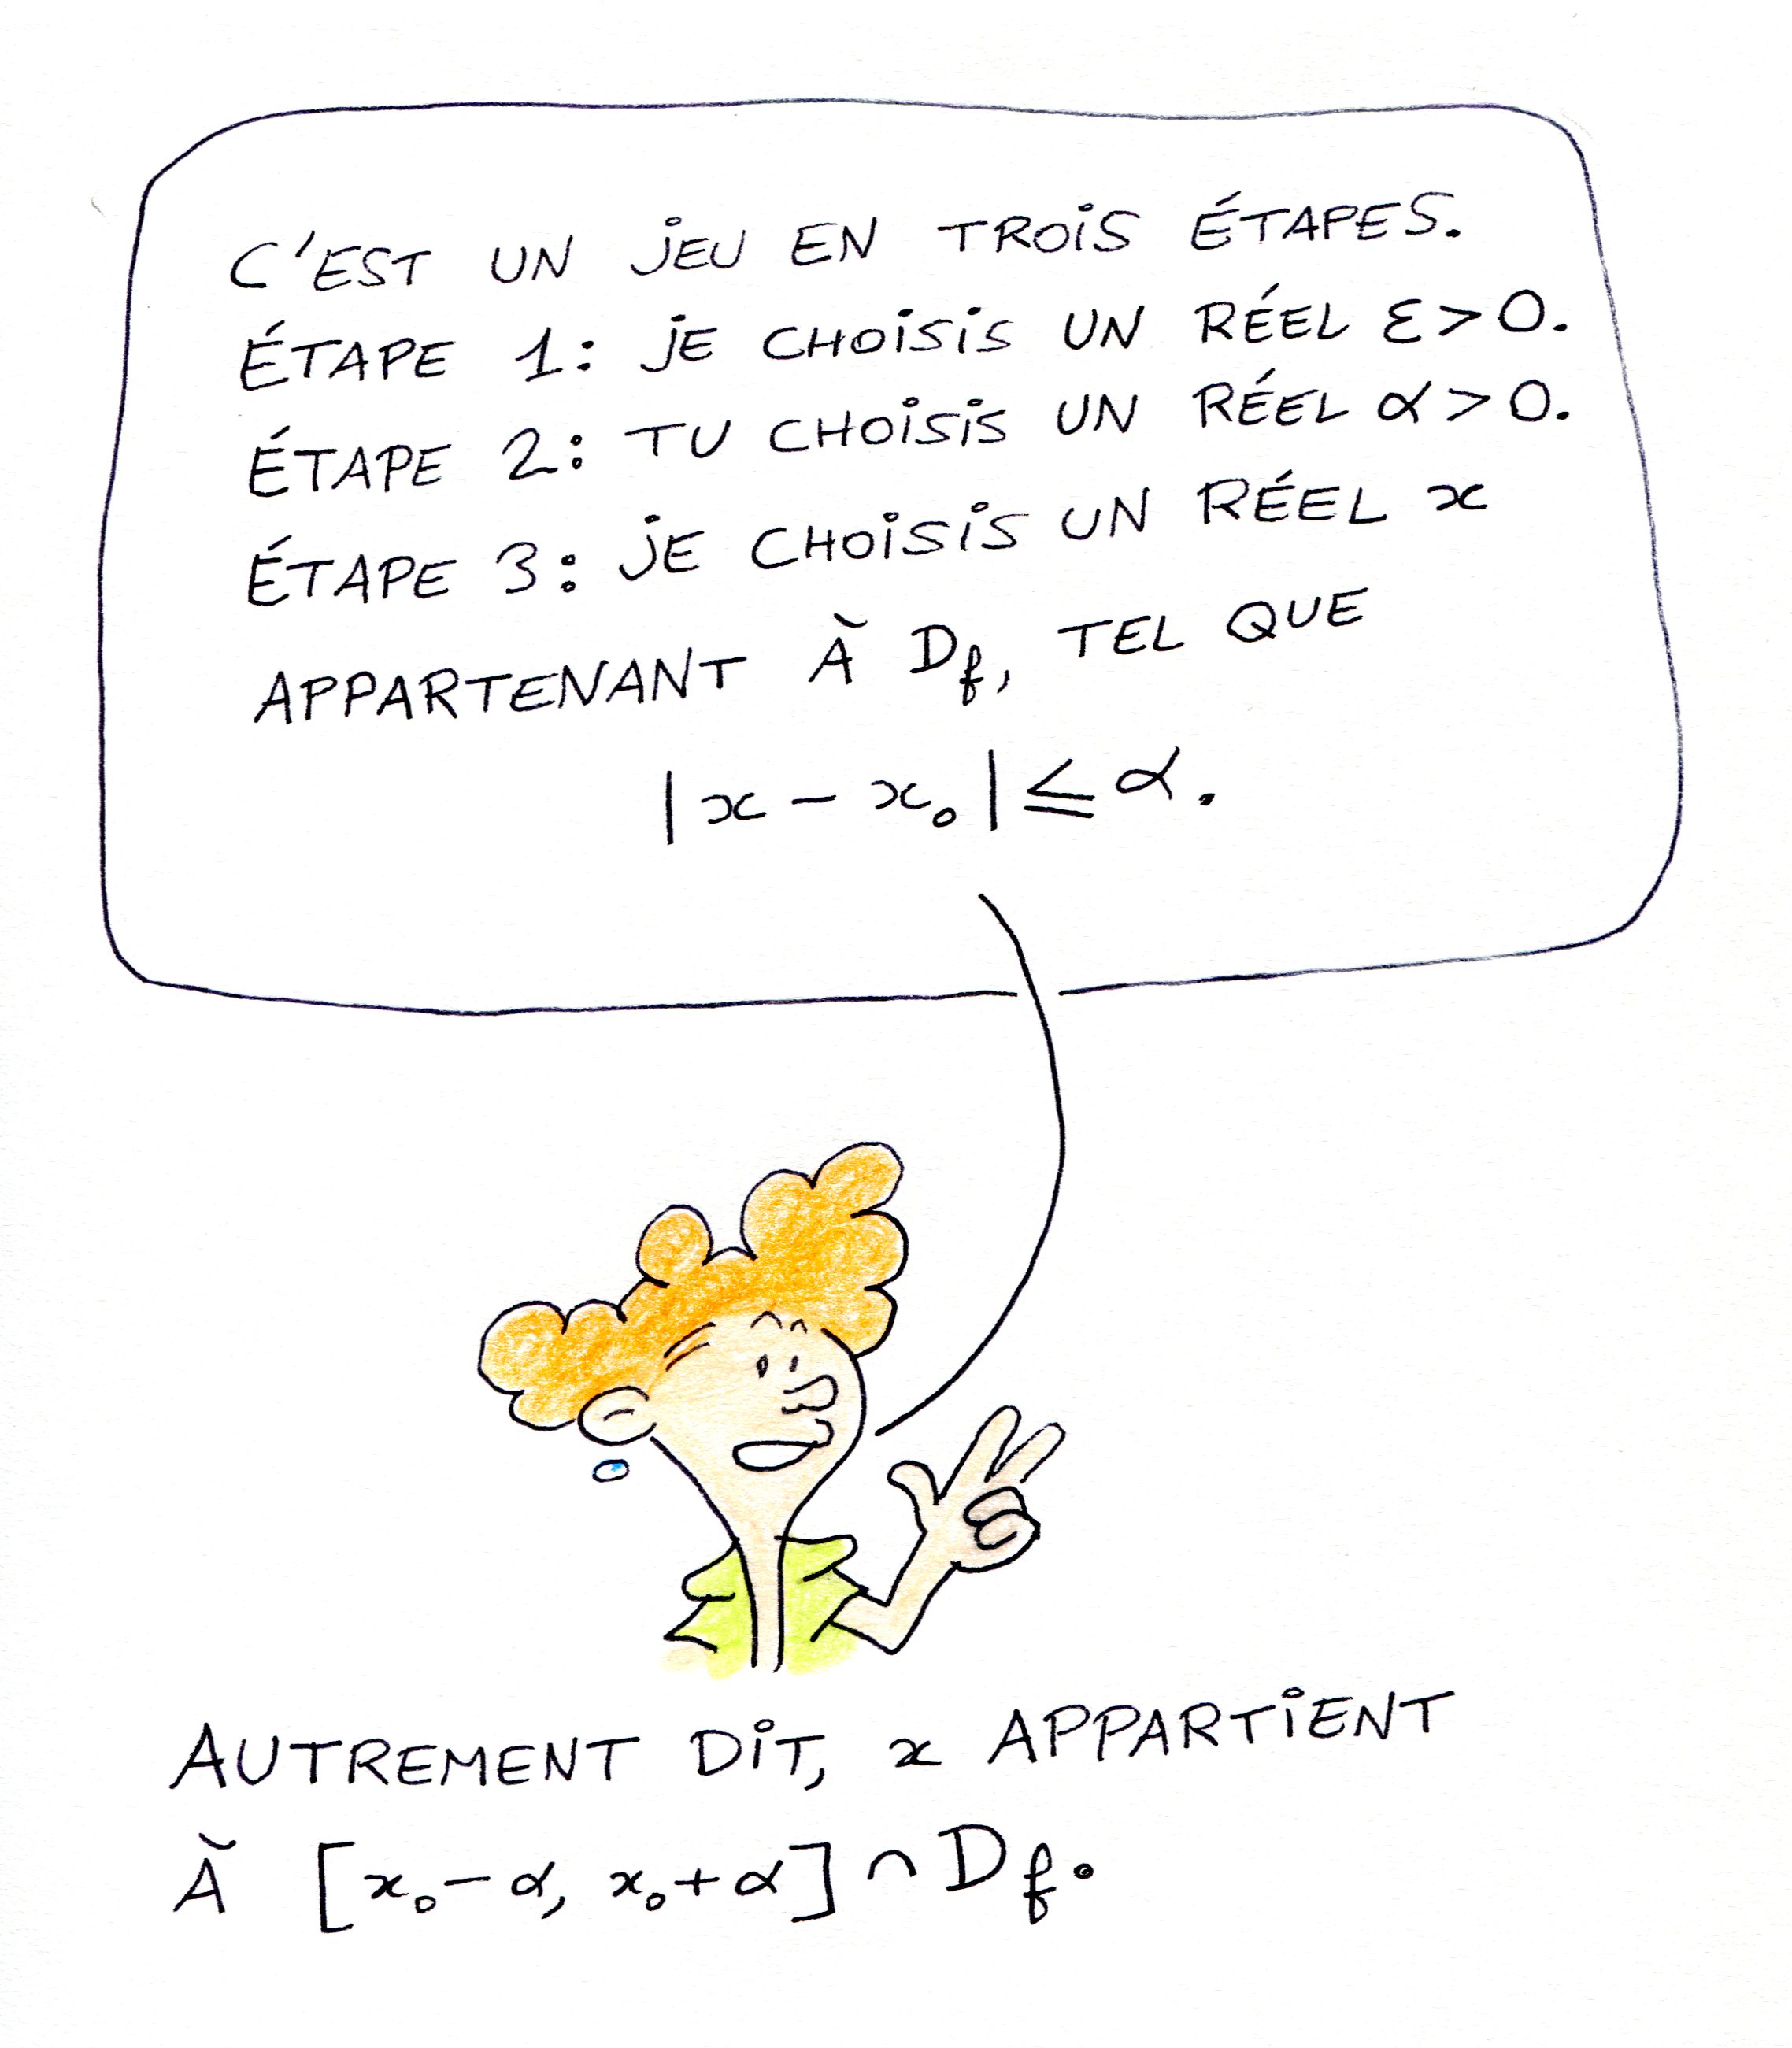 C'EST UN JEU EN TROIS ÉTAPES.
ÉTAPE 1: JE CHOISIS UN RÉEL ε>0.
ÉTAPE 2: TU CHOISIS UN RÉEL α>0.
ÉTAPE 3: JE CHOISIS UN RÉEL x
APPARTENANT À Df, TEL QUE
|x - x₀| ≦ α.
AUTREMENT DIT, x APPARTIENT
À [x₀-α, x₀+α] ∩ Df.